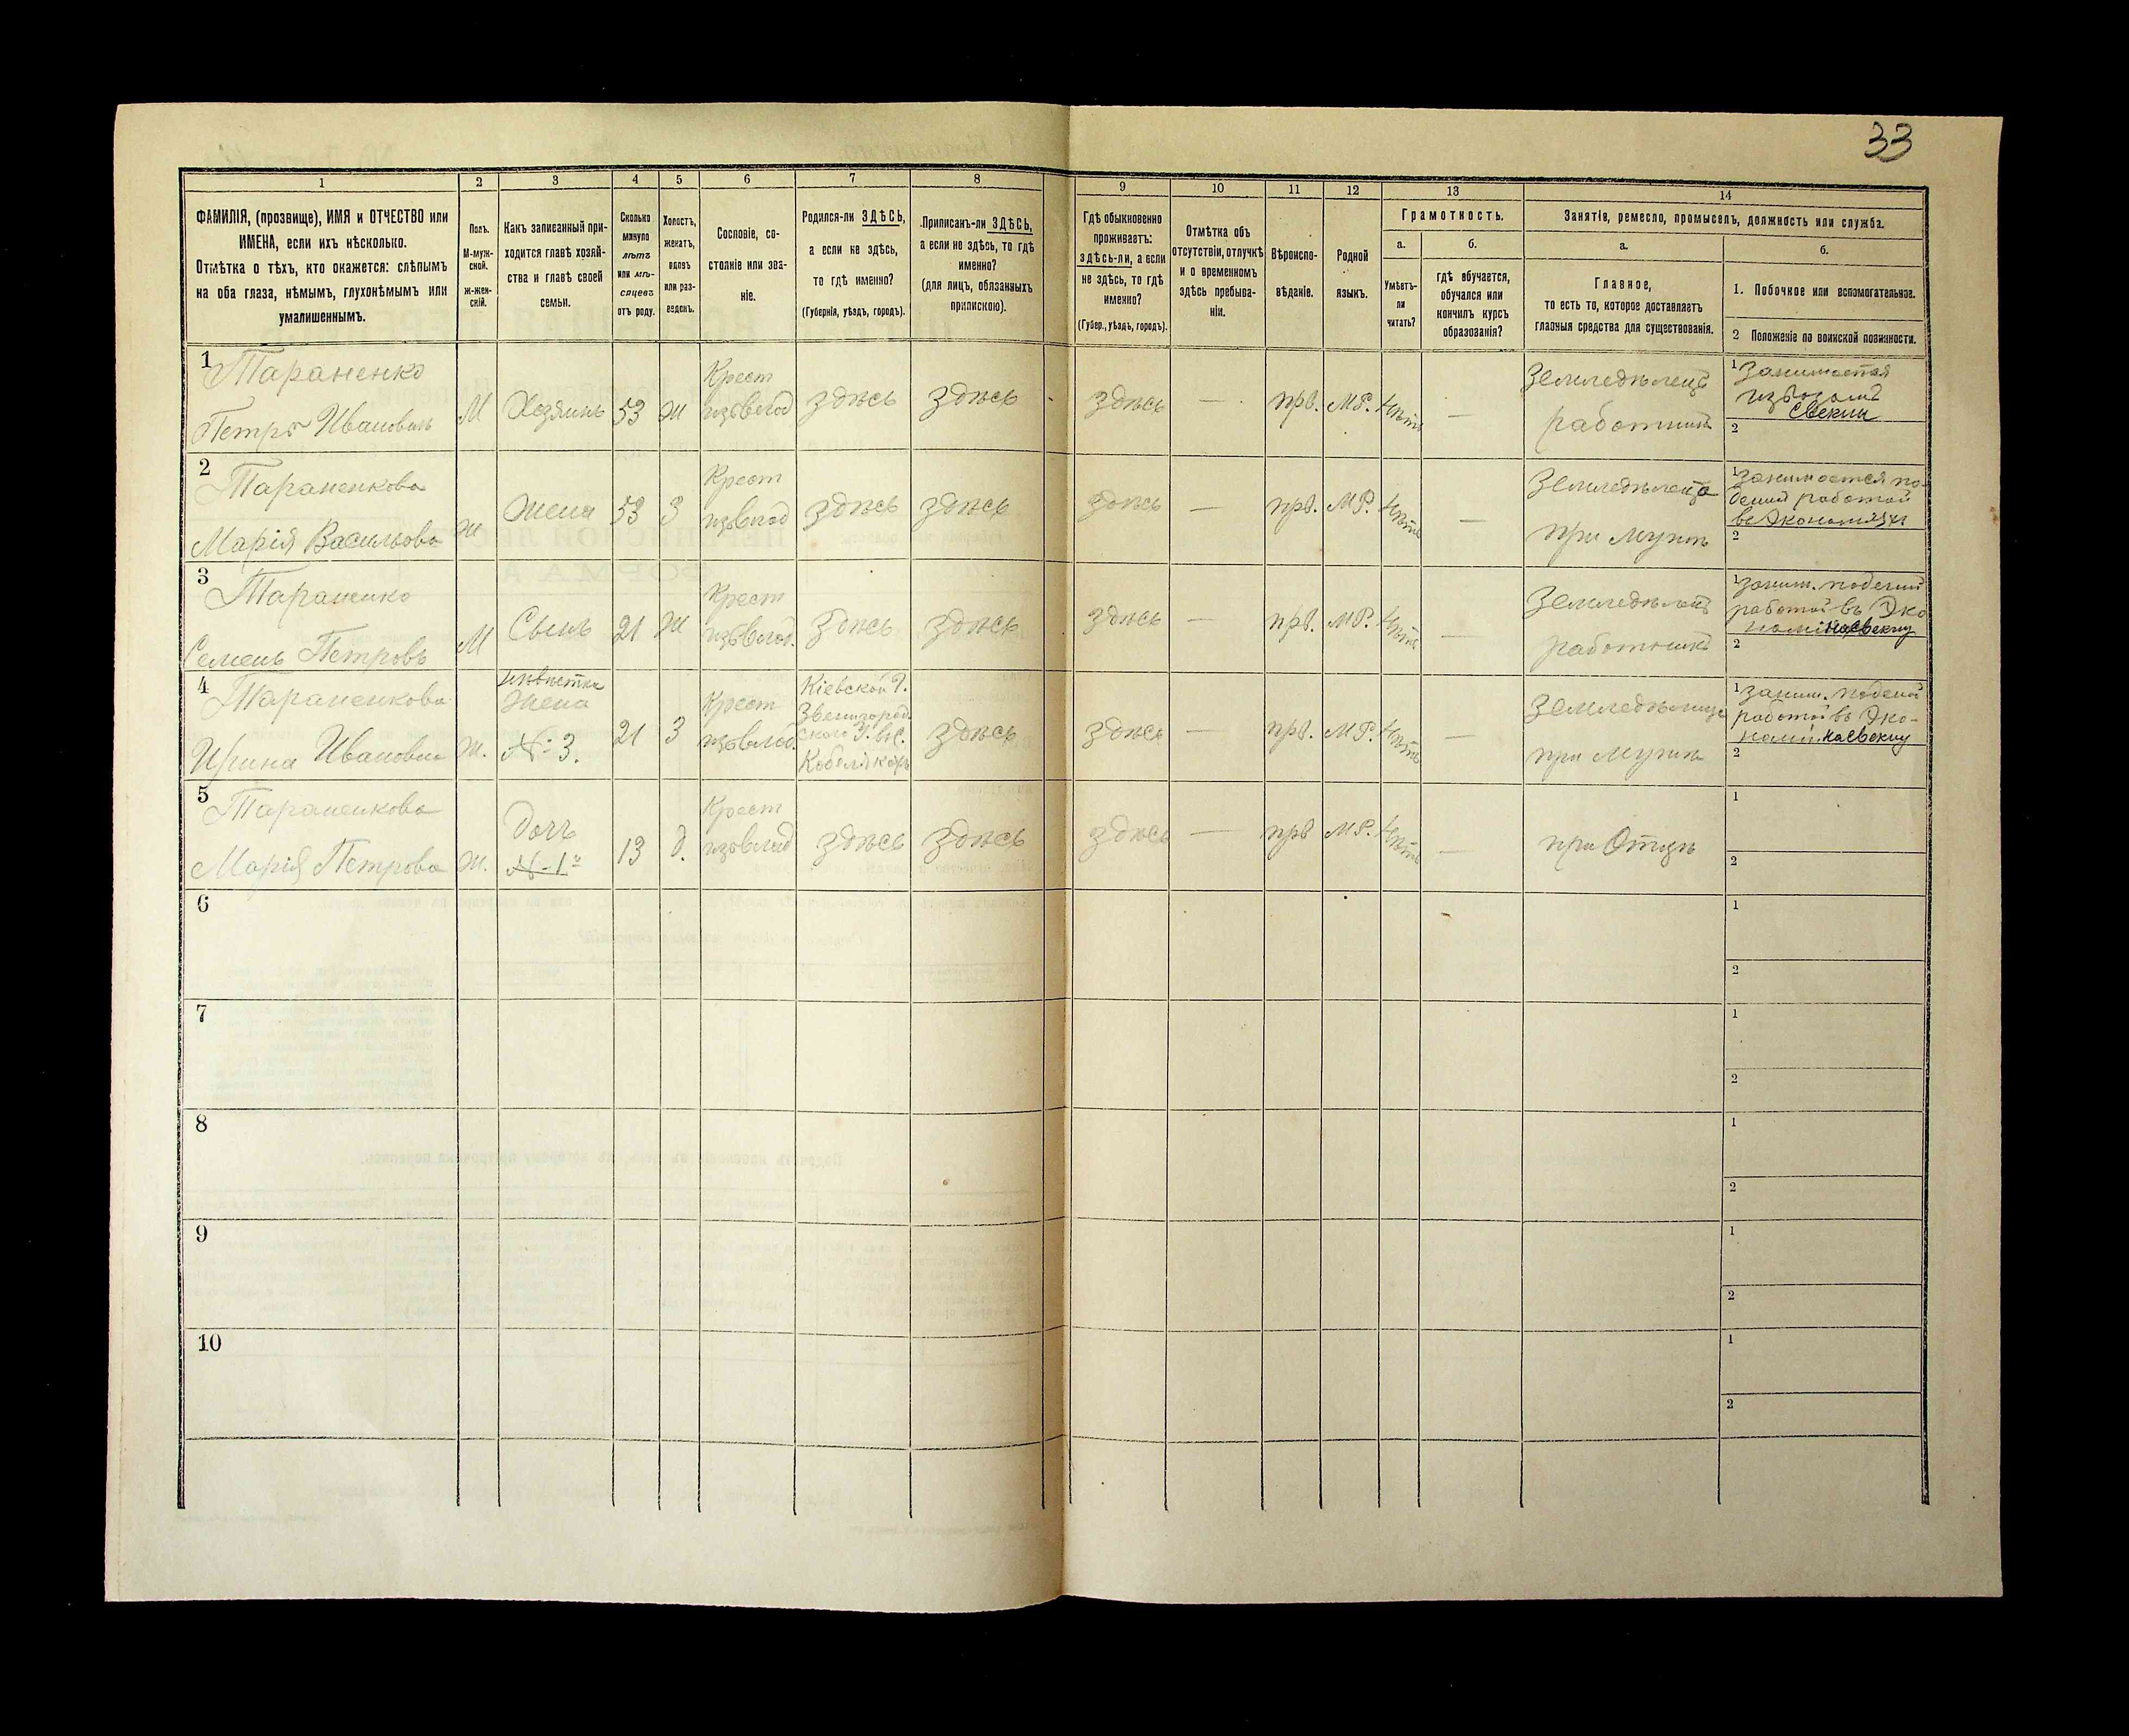 33
1
2
3
4
5
6
7
8
9
10
11
12
13
14
ФАМИЛІЯ, (прозвище), ИМЯ и ОТЧЕСТВО или
ИМЕНА, если ихъ нѣсколько.
Отмѣтка о тѣхъ, кто окажется: слѣпымъ
на оба глаза, нѣмымъ, глухонѣмымъ или
умалишеннымъ.
Полъ.
М-муж-
ской.
ж-жен-
скій.
Какъ записанный при-
ходится главѣ хозяй-
ства и главѣ своей
семьи.
Сколько
минуло
лѣтъ
или мѣ-
сяцевъ
отъ роду.
Холостъ,
женатъ,
вдовъ
или раз-
веденъ.
Сословіе, со-
стояніе или зва-
ніе.
Родился-ли ЗДѢСЬ,
а если не здѣсь,
то гдѣ именно?
(Губернія, уѣздъ, городъ).
Приписанъ-ли ЗДѢСЬ,
а если не здѣсь, то гдѣ
именно?
(для лицъ, обязанныхъ
припискою).
Гдѣ обыкновенно
проживаетъ:
здѣсь-ли, а если
не здѣсь, то гдѣ
именно?
(Губер., уѣздъ, городъ).
Отмѣтка объ
отсутствіи, отлучкѣ
и о временномъ
здѣсь пребыва-
ніи.
Вѣроиспо-
вѣданіе.
Родной
языкъ.
Грамотность.
а.
Умѣетъ-
ли
читать?
б.
гдѣ обучается,
обучался или
кончилъ курсъ
образованія?
Занятіе, ремесло, промыселъ, должность или служба.
а.
Главное,
то есть то, которое доставляетъ
главныя средства для существованія.
б.
1. Побочное или вспомогательное.
2 Положеніе по воинской повинности.
1
Тараненко
Петръ Ивановъ
М
Хозяинъ
53
Ж
Крест
изъвлад
здѣсь
здѣсь
здѣсь
—
прв.
МР.
Нѣтъ
—
Земледѣлецъ
работникъ
1 Занимается
извозомъ
2
2
Тараненкова
Марія Васильова
Ж
Жена
53
З
Крест
изъвлад
здѣсь
здѣсь
здѣсь
—
прв.
МР.
Нѣтъ
—
Земледѣлеца
при мужѣ
1 Занимается по-
деной работой
въ Экономіи
2
3
Тараненко
Семенъ Петровъ
М
Сынъ
21
Ж
Крест
изъвлад.
здѣсь
здѣсь
здѣсь
—
прв.
МР.
Нѣтъ
—
Земледѣлецъ
работникъ
1 Заним. поденой
работой въ Эко
2
4
Тараненкова
Ирина Иванова
Ж.
невѣстка
Жена
№ 3.
21
З
Крест
изъвлад.
Кіевской Г.
Звенигород.
ского У. вс.
здѣсь
здѣсь
—
прв.
МР.
Нѣтъ
—
Земледѣлица
при мужѣ
1 Заним. поденой
работой въ Эко-
2
5
Тараненкова
Марія Петрова
Ж.
Дочъ
№ 1й
13
д.
Крест
изъвлад
здѣсь
здѣсь
здѣсь
—
прв
МР.
Нѣтъ
—
при Отцѣ
1
2
6
1
2
7
1
2
8
1
2
9
1
2
10
1
2